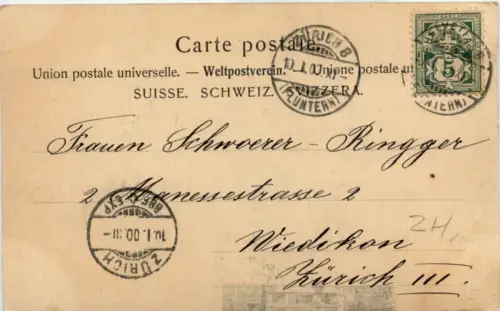 Carte postale.
Union postale universelle. — Weltpostverein. — Unione postale u
SUISSE. SCHWEIZ. SVIZZERA.
ZÜRICH 8
(FLUNTERN)
5
Frauen Schwoerer-Ringger
2 Manessestrasse 2
Wiedikon
Zürich III.
ZH.
BRF. EXP.
10. I. 00. III-
ZÜRICH